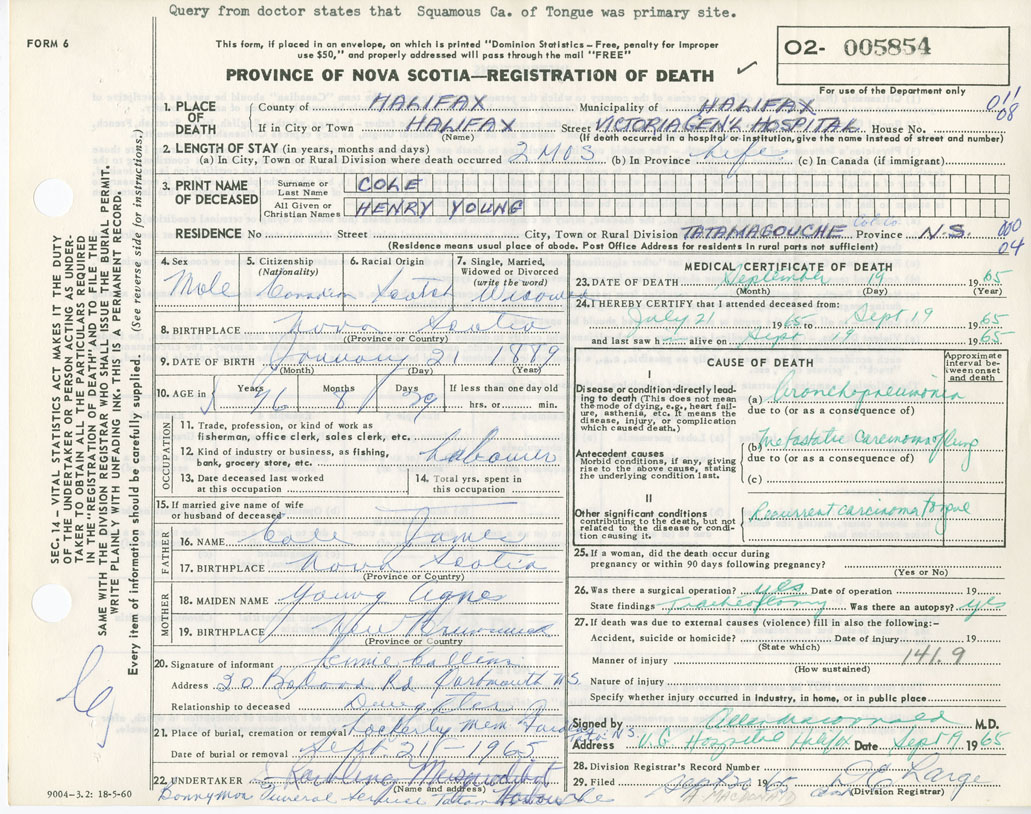 Query from doctor states that Squamous Ca. of Tongue was primary site.
FORM 6
This form, if placed in an envelope, on which is printed "Dominion Statistics – Free, penalty for improper
use $50," and properly addressed will pass through the mail "FREE"
O2- 005854
PROVINCE OF NOVA SCOTIA—REGISTRATION OF DEATH ✓
For use of the Department only
011
08
1. PLACE OF DEATH
County of HALIFAX Municipality of HALIFAX
If in City or Town HALIFAX Street VICTORIA GEN'L HOSPITAL House No.
(Name) (If death occurred in a hospital or institution, give its name instead of street and number)
2. LENGTH OF STAY (in years, months and days)
(a) In City, Town or Rural Division where death occurred 2 MOS. (b) In Province Life (c) In Canada (if immigrant)
3. PRINT NAME OF DECEASED
Surname or Last Name COLE
All Given or Christian Names HENRY YOUNG
RESIDENCE No Street City, Town or Rural Division TATAMAGOUCHE Province N.S. 000
04
(Residence means usual place of abode. Post Office Address for residents in rural parts not sufficient)
SEC. 14 – VITAL STATISTICS ACT MAKES IT THE DUTY
OF THE UNDERTAKER OR PERSON ACTING AS UNDER-
TAKER TO OBTAIN ALL THE PARTICULARS REQUIRED
IN THE "REGISTRATION OF DEATH" AND TO FILE THE
SAME WITH THE DIVISION REGISTRAR WHO SHALL ISSUE THE BURIAL PERMIT.
WRITE PLAINLY WITH UNFADING INK. THIS IS A PERMANENT RECORD.
Every item of information should be carefully supplied. (See reverse side for instructions.)
4. Sex Male
5. Citizenship (Nationality) Canadian
6. Racial Origin Scotch
7. Single, Married, Widowed or Divorced (write the word) Widowed
8. BIRTHPLACE Nova Scotia
((Province or Country)
9. DATE OF BIRTH January 21 1889
(Month) (Day) (Year)
10. AGE in Years 76 Months 8 Days 29 If less than one day old hrs. or min.
OCCUPATION
11. Trade, profession or kind of work as
fisherman, office clerk, sales clerk, etc.
12. Kind of industry or business, as fishing,
bank, grocery store, etc. Labourer
13. Date deceased last worked
at this occupation
14. Total yrs. spent in
this occupation
15. If married give name of wife
or husband of deceased
FATHER
16. NAME Cole James
17. BIRTHPLACE Nova Scotia
(Province or Country)
MOTHER
18. MAIDEN NAME Young Agnes
19. BIRTHPLACE New Brunswick
(Province or Country)
20. Signature of informant
Address 20 Rd Dartmouth N.S.
Relationship to deceased Daughter
21. Place of burial, cremation or removal Lockerby Mem
Date of burial or removal Sept 21 – 1965
22. UNDERTAKER
(Name and address)
Funeral Service
9004-3.2: 18-5-60
MEDICAL CERTIFICATE OF DEATH
23. DATE OF DEATH September 19 1965
(Month) (Day) (Year)
24. I HEREBY CERTIFY that I attended deceased from:
July 21 1965 to Sept 19 1965
and last saw h alive on Sept 19 1965
CAUSE OF DEATH
Approximate interval between onset and death
I
Disease or condition directly leading to death (This does not mean the mode of dying, e.g., heart failure, asthenia, etc. It means the disease, injury, or complication which caused death.)
(a) Bronchopneumonia
due to (or as a consequence of)
Antecedent causes
Morbid conditions, if any, giving rise to the above cause, stating the underlying condition last.
(b) Metastatic Carcinoma of lung
due to (or as a consequence of)
(c)
II
Other significant conditions
contributing to the death, but not related to the disease or condition causing it.
Recurrent carcinoma tongue
25. If a woman, did the death occur during
pregnancy or within 90 days following pregnancy?
(Yes or No)
26. Was there a surgical operation? yes Date of operation 19
State findings Tracheotomy Was there an autopsy? yes
27. If death was due to external causes (violence) fill in also the following:-
Accident, suicide or homicide? Date of injury 19
(State which)
Manner of injury 141.9
(How sustained)
Nature of injury
Specify whether injury occurred in Industry, in home, or in public place
Signed by Macdonald M.D.
Address V.G. Hospital Halifax Date Sept 19 1965
28. Division Registrar's Record Number
29. Filed Sept 20 1965 Large
(Division Registrar)
A MACDONALD